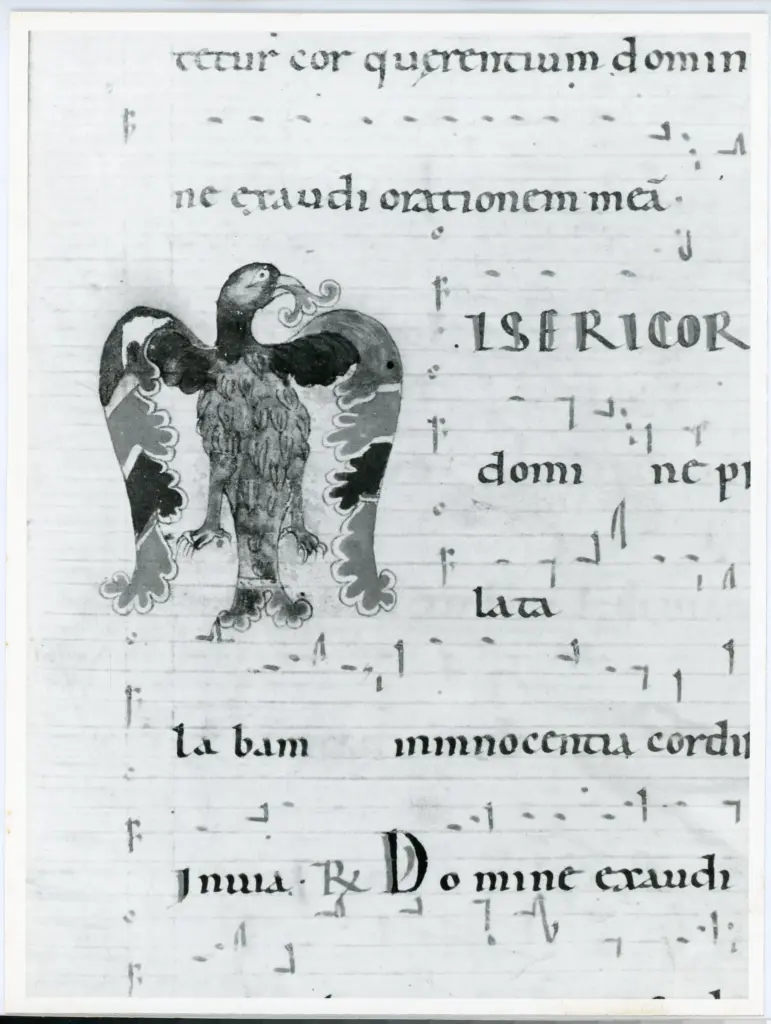 tetur cor querentium domin
ne exaudi orationem meā.
ISERICOR
domi ne pr
lata
la bam inninocentia cordi
Inuia. ℞ Do mine exaudi